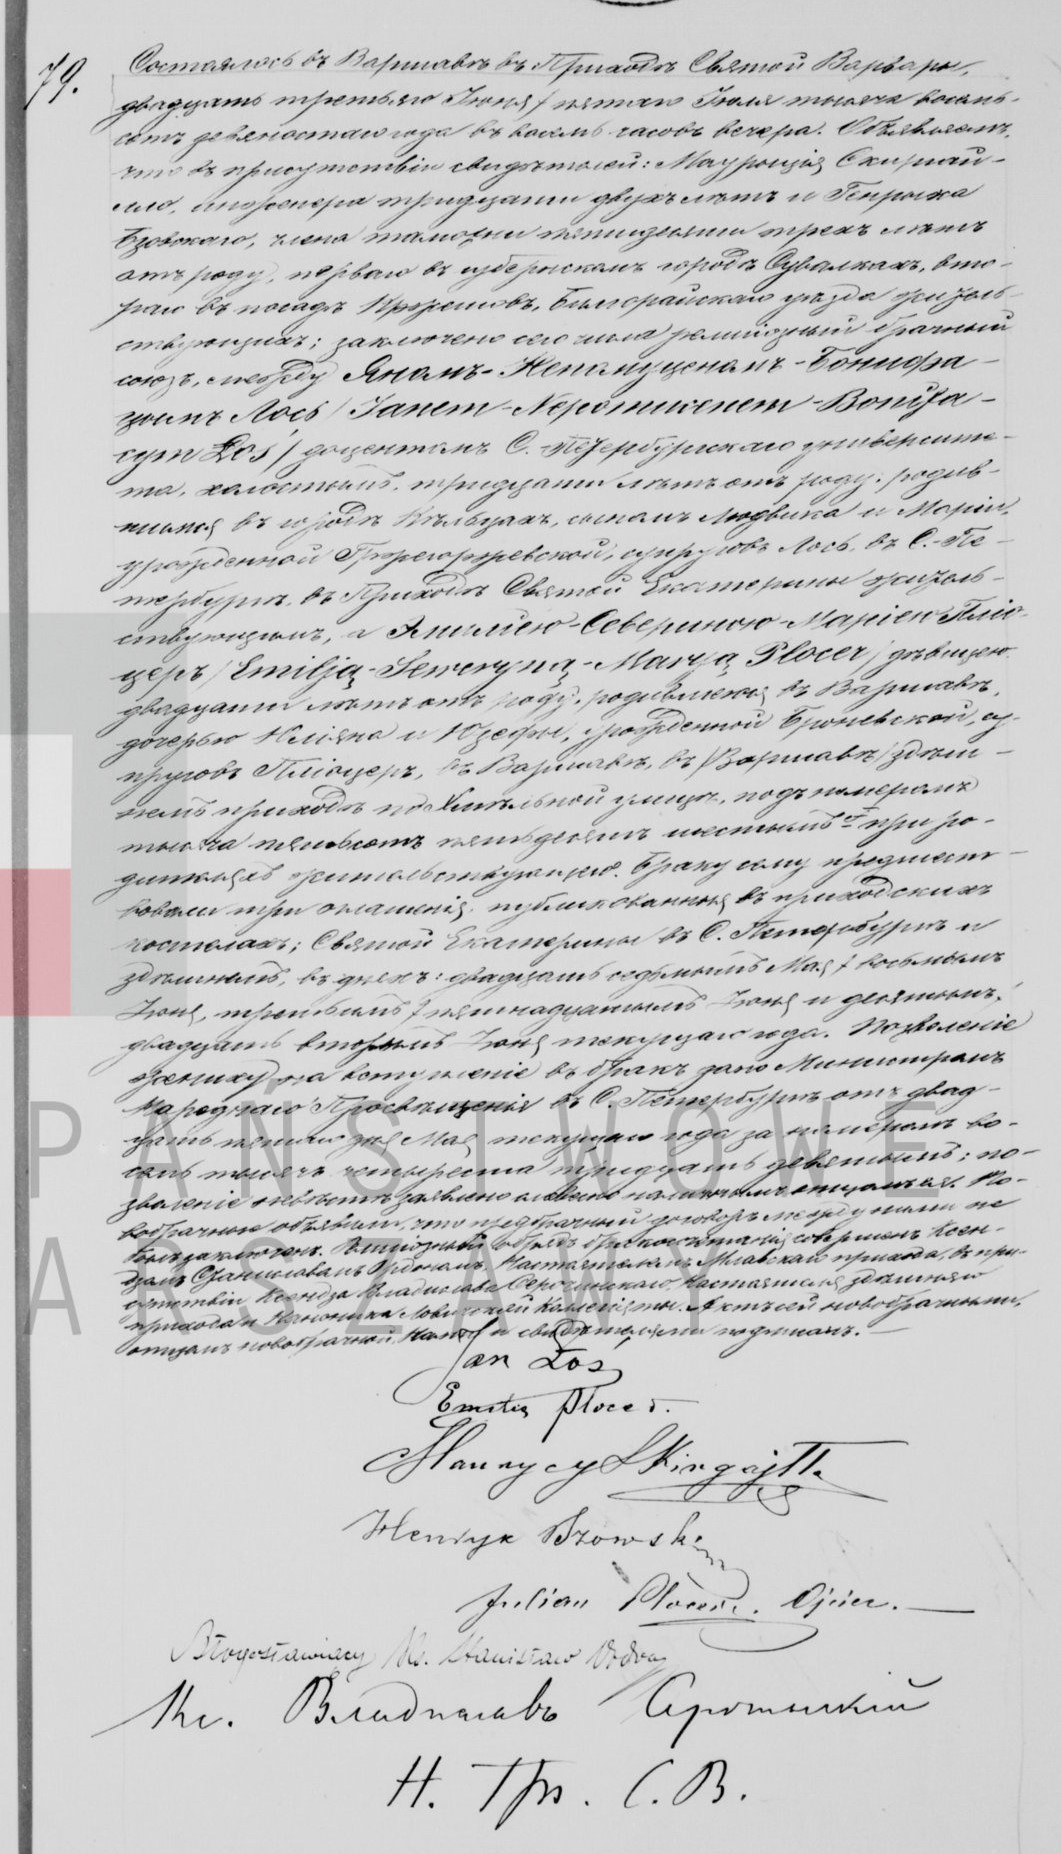 79.
Состоялось въ Варшавѣ въ Приходѣ Святой Варвары,
двадцать третьяго Іюня / пятаго Іюля тысяча восемь-
сотъ девяностаго года въ восемь часовъ вечера. Объявляемъ,
что въ присутствіи свидѣтелей: Маурыція Скиргай-
лло, инженера тридцати двухъ лѣтъ и Генрыка
Бзовскаго, члена таможни пятидесяти трехъ лѣтъ
отъ роду, перваго въ губернскомъ городѣ Сувалкахъ, вто-
раго въ посадѣ Кржешовъ, Бѣлгорайскаго уѣзда житель-
ствующихъ; заключено сего числа религіозный брачный
союзъ, между Яномъ-Непомуценомъ-Бонифа-
цымъ Лось / Janem-Nepomucenem-Bonifa-
cym Łoś / доцентомъ С.-Петербургскаго университе-
та, холостымъ, тридцати лѣтъ отъ роду, родив-
шимся въ городѣ Кѣльцахъ, сыномъ Людвика и Маріи,
урожденной Гржегоржевской, супруговъ Лось, въ С.-Пе-
тербургѣ, въ Приходѣ Святой Екатерины житель-
ствующимъ, и Эмиліею-Севериною-Маріею Пліо-
церъ / Emilją-Seweryną-Marją Plocer / дѣвицею
двадцати лѣтъ отъ роду, родившеюся въ Варшавѣ,
дочерью Юліяна и Юзефы, урожденной Броневской, су-
пруговъ Пліоцеръ, въ Варшавѣ, въ / Варшавѣ / здѣш-
немъ приходѣ по Хмѣльной улицѣ, подъ номеромъ
тысяча пятьсотъ пятьдесятъ шестымъ при ро-
дителяхъ жительствующею. Браку сему предшест-
вовали три оглашенія, публикованныя въ приходскихъ
костелахъ; Святой Екатерины въ С. Петербургѣ и
здѣшнемъ, въ дняхъ: двадцать седьмымъ Мая / восьмымъ
Іюня, третьимъ / пятнадцатымъ Іюня и десятымъ /
двадцать вторымъ Іюня текущаго года. Позволеніе
жениху на вступленіе въ бракъ дано Министромъ
Народнаго Просвѣщенія въ С. Петербургѣ отъ двад-
цать пятаго дня Мая текущаго года за номеромъ во-
семь тысячъ четыреста тридцать девятымъ; по-
зволеніе невѣстѣ заявлено словесно наличнымъ отцомъ ея. Но-
вобрачные объявили, что предбрачный договоръ между ними не
былъ заключенъ. Религіозный обрядъ бракосочетанія совершенъ Ксен-
дзомъ Станиславомъ Настоятелемъ Млавскаго прихода, въ при-
сутствіи Ксендза Владислава Сероцинскаго, Настоятеля здѣшняго
прихода и Каноника Ловичской Коллегіяты. Актъ сей новобрачными,
отцомъ новобрачной, Нами и свидѣтелями подписанъ. —
Jan Łoś
Emilia Plocer.
Maurycy Skirgajłło
Henryk Bzowski
Julian Plocer. Ojciec. —
Błogosławiący Ks. Stanisław
Кс. Владиславъ Сероцинскій
Н. Пр. С. В.
PAŃSTWOWE
ARSZAWY